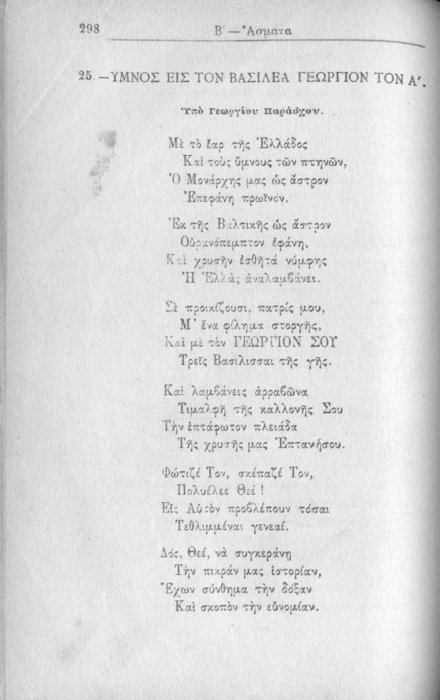 298
Β′ — Ἄσματα
25. — ΥΜΝΟΣ ΕΙΣ ΤΟΝ ΒΑΣΙΛΕΑ ΓΕΩΡΓΙΟΝ ΤΟΝ Α′.
Ὑπὸ Γεωργίου Παράσχου.
Μὲ τὸ ἔαρ τῆς Ἑλλάδος
Καὶ τοὺς ὕμνους τῶν πτηνῶν,
Ὁ Μονάρχης μας ὡς ἄστρον
Ἐπεφάνη πρωϊνόν.
Ἐκ τῆς Βαλτικῆς ὡς ἄστρον
Οὐρανόπεμπτον ἐφάνη,
Καὶ χρυσῆν ἐσθῆτά νύμφης
Ἡ Ἑλλὰς ἀναλαμβάνει.
Σὲ προικίζουσι, πατρίς μου,
Μ' ἕνα φίλημα στοργῆς,
Καὶ μὲ τὸν ΓΕΩΡΓΙΟΝ ΣΟΥ
Τρεῖς Βασίλισσαι τῆς γῆς.
Καὶ λαμβάνεις ἀρραβῶνα
Τιμαλφῆ τῆς καλλονῆς Σου
Τὴν ἑπτάφωτον πλειάδα
Τῆς χρυσῆς μας Ἑπτανήσου.
Φώτιζέ Τον, σκέπαζέ Τον,
Πολυέλεε Θεέ !
Εἰς Αὐτὸν προβλέπουν τόσαι
Τεθλιμμέναι γενεαί.
Δός, Θεέ, νὰ συγκεράνῃ
Τὴν πικράν μας ἱστορίαν,
Ἔχων σύνθημα τὴν δόξαν
Καὶ σκοπὸν τὴν εὐνομίαν.